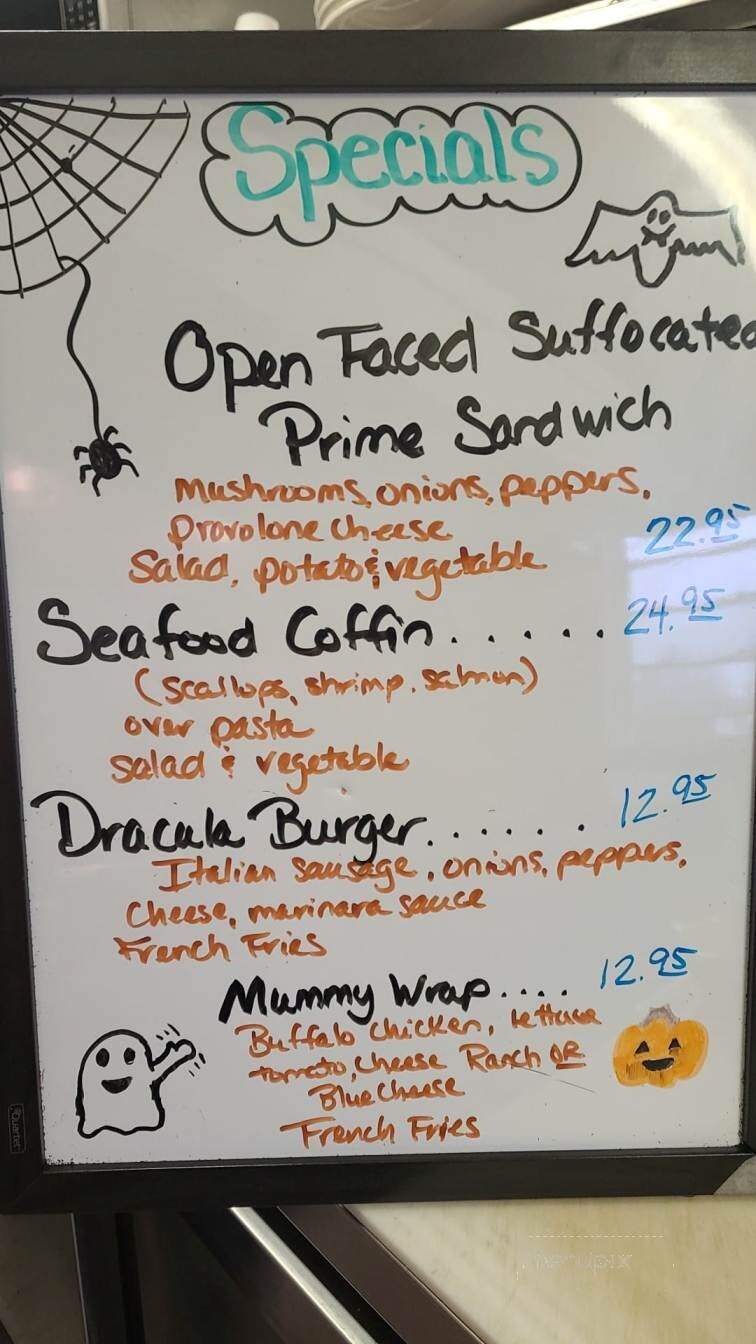 Specials
Open Faced Suffocated
Prime Sandwich
Mushrooms, onions, peppers,
provolone cheese
22.95
Salad, potato & vegetable
Seafood Coffin . . . . . . 24.95
(scallops, shrimp, salmon)
over pasta
salad & vegetable
Dracula Burger. . . . . . . 12.95
Italian sausage, onions, peppers,
cheese, marinara sauce
French Fries
Mummy Wrap . . . . 12.95
Buffalo chicken, lettuce
tomato, cheese Ranch OR
Blue Cheese
French Fries
Quartet